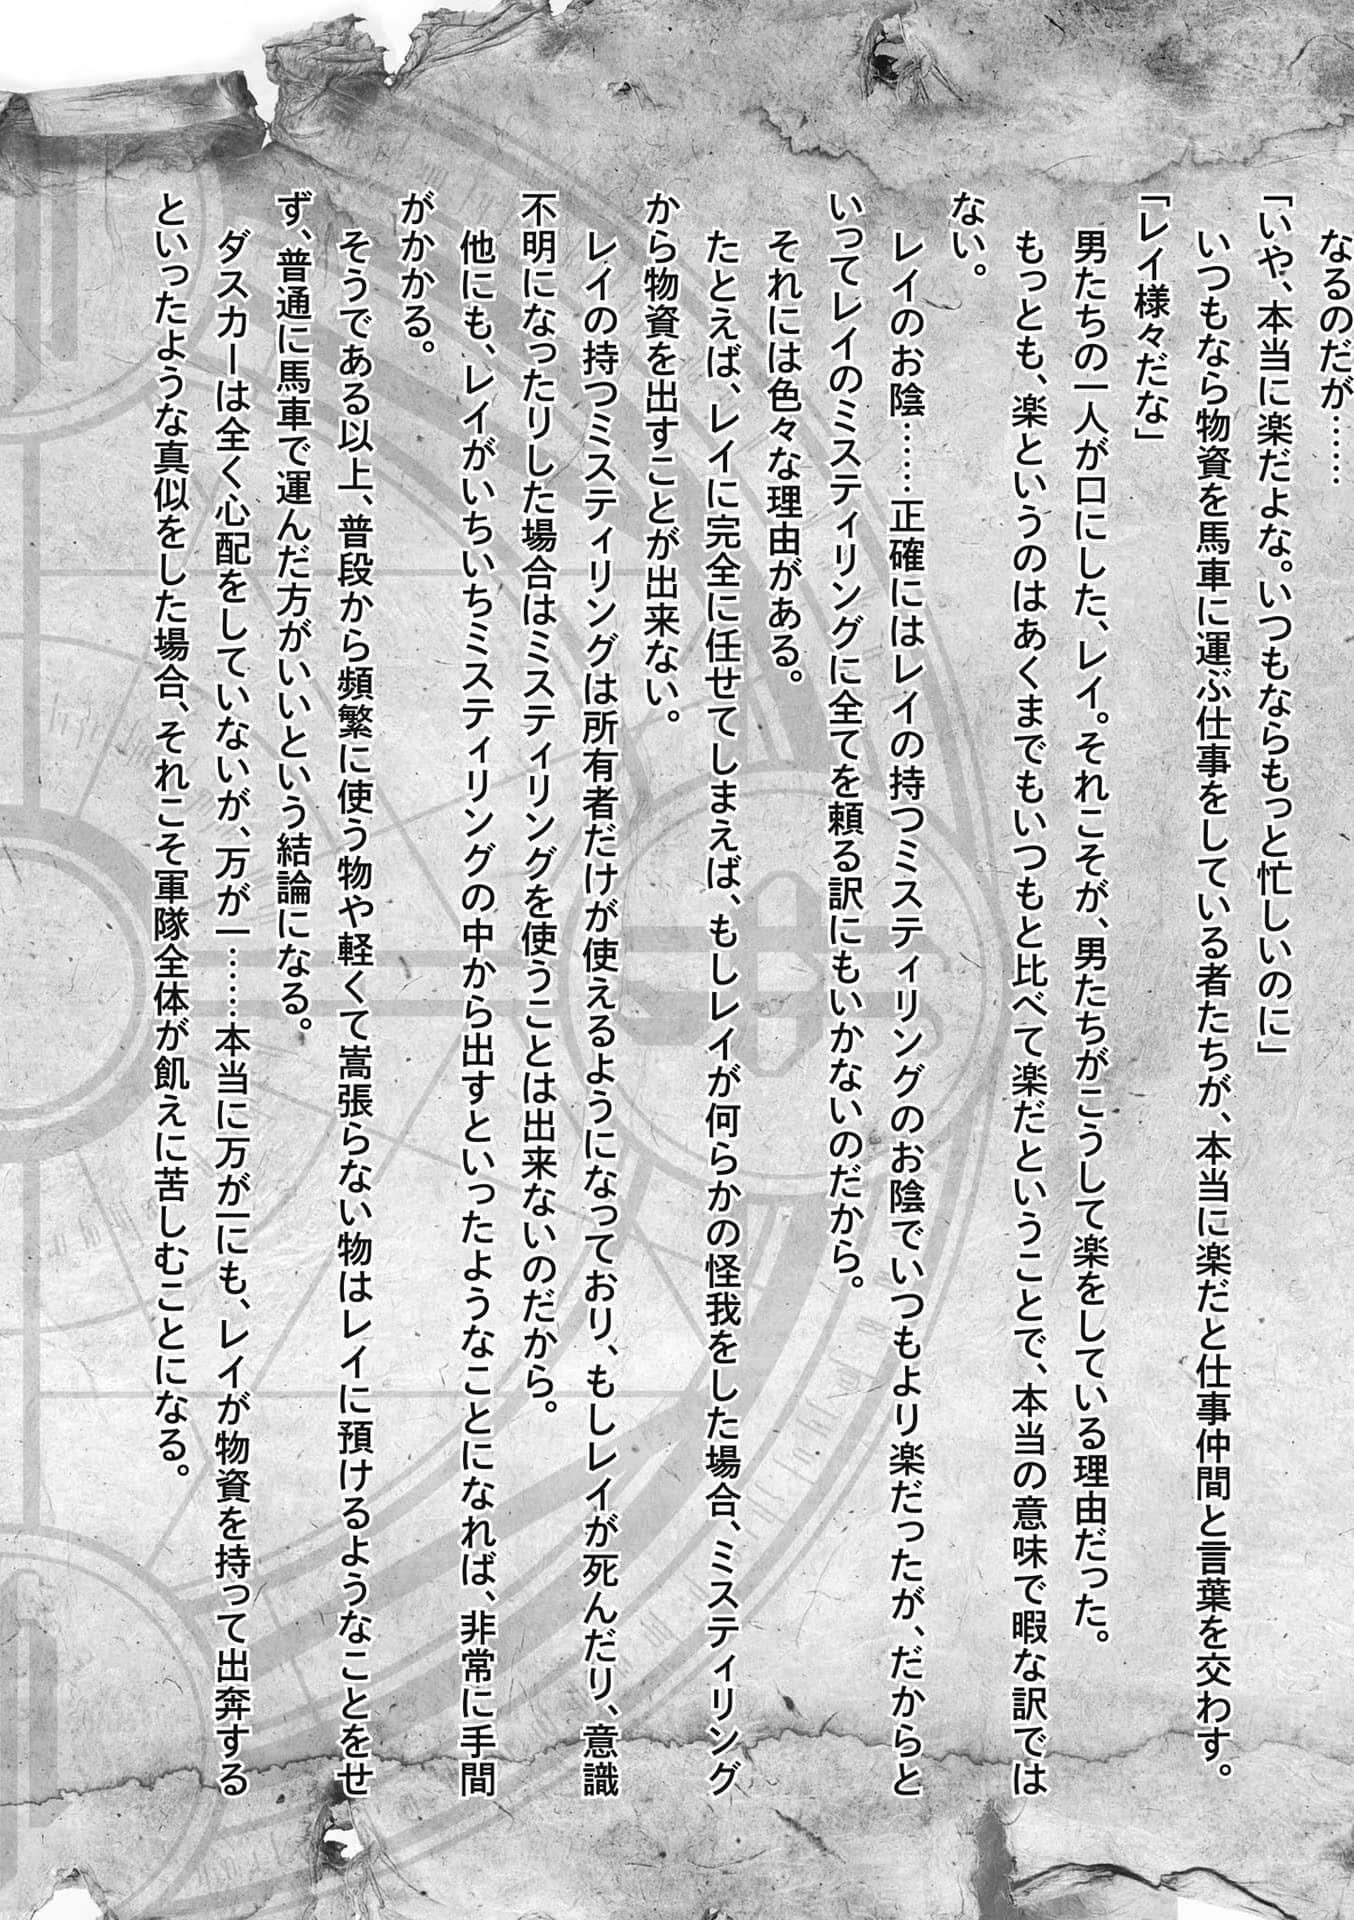 なるのだが……
「いや、本当に楽だよな。いつもならもっと忙しいのに」
いつもなら物資を馬車に運ぶ仕事をしている者たちが、本当に楽だと仕事仲間と言葉を交わす。
「レイ様々だな」
男たちの一人が口にした、レイ。それこそが、男たちがこうして楽をしている理由だった。
もっとも、楽というのはあくまでもいつもと比べて楽だということで、本当の意味で暇な訳では
ない。
レイのお陰……正確にはレイの持つミスティリングのお陰でいつもより楽だったが、だからと
いってレイのミスティリングに全てを頼る訳にもいかないのだから。
それには色々な理由がある。
たとえば、レイに完全に任せてしまえば、もしレイが何らかの怪我をした場合、ミスティリング
から物資を出すことが出来ない。
レイの持つミスティリングは所有者だけが使えるようになっており、もしレイが死んだり、意識
不明になったりした場合はミスティリングを使うことは出来ないのだから。
他にも、レイがいちいちミスティリングの中から出すといったようなことになれば、非常に手間
がかかる。
そうである以上、普段から頻繁に使う物や軽くて嵩張らない物はレイに預けるようなことをせ
ず、普通に馬車で運んだ方がいいという結論になる。
ダスカーは全く心配をしていないが、万が一……本当に万が一にも、レイが物資を持って出奔する
といったような真似をした場合、それこそ軍隊全体が飢えに苦しむことになる。